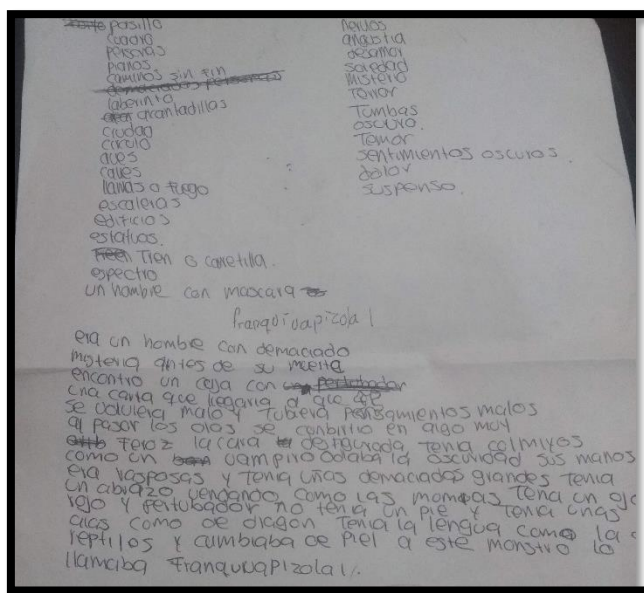 pasillo
cuadro
personas
panos.
caminos sin fin
demaciados
laberinto
arcantadillas
ciudad
circulo
aves
calles
llamas o fuego
escaleras
edificios
estatuas.
Tren o carretilla.
espectro
un hombre con mascara
nervios
angustia
desamor
soledad
misterio
Terror
Tumbas
oscuro.
Temor
sentimientos oscuros.
dolor
suspenso.
franquivapizola 1
era un hombre con demaciado
misterio antes de su muerta
encontro un caja con
una carta que llegaria a que
se volviera malo y tubiera pensamientos malos
al pasar los dias se conbirtio en algo muy
Feroz la cara desfigurada tenia colmiyos
como un vampiro odiaba la oscuridad sus manos
era rasposas y tenia uñas demaciadas grandes tenia
un abrazo vendando como las momias Tena un ojo
rojo y pertubador no tenia un pie y Tenia unas
alas como de dragon Tenia la lengua como la
reptilos y cambiaba de Piel a este monstro lo
llamaba